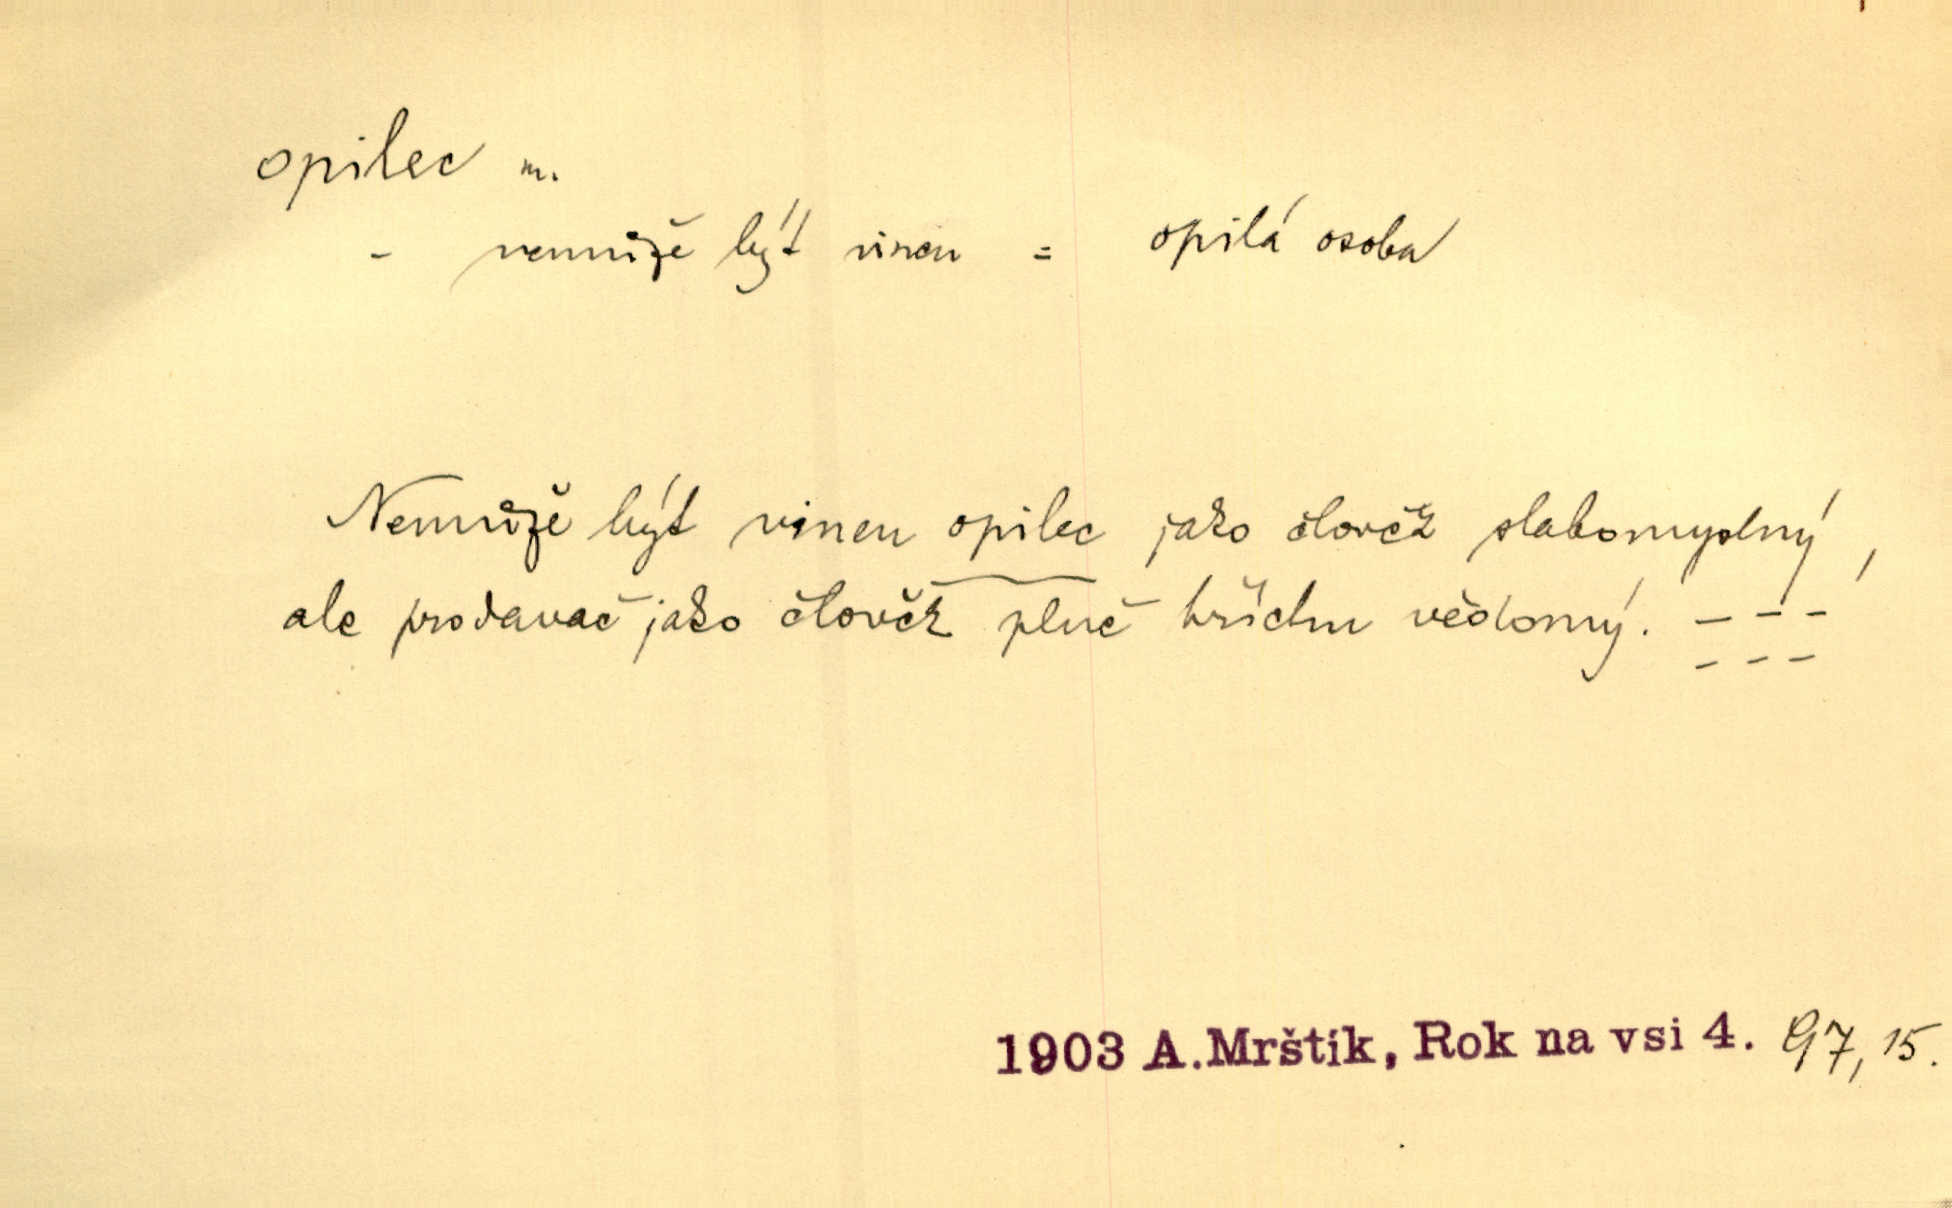 opilec m.
- nemůže být vinen = opilá osoba
Nemůže být vinen opilec jako člověk slabomyslný,
ale prodavač jako člověk plně hříchu vědomý. - - -
- - -
1903 A.Mrštík, Rok na vsi 4. 97, 15.